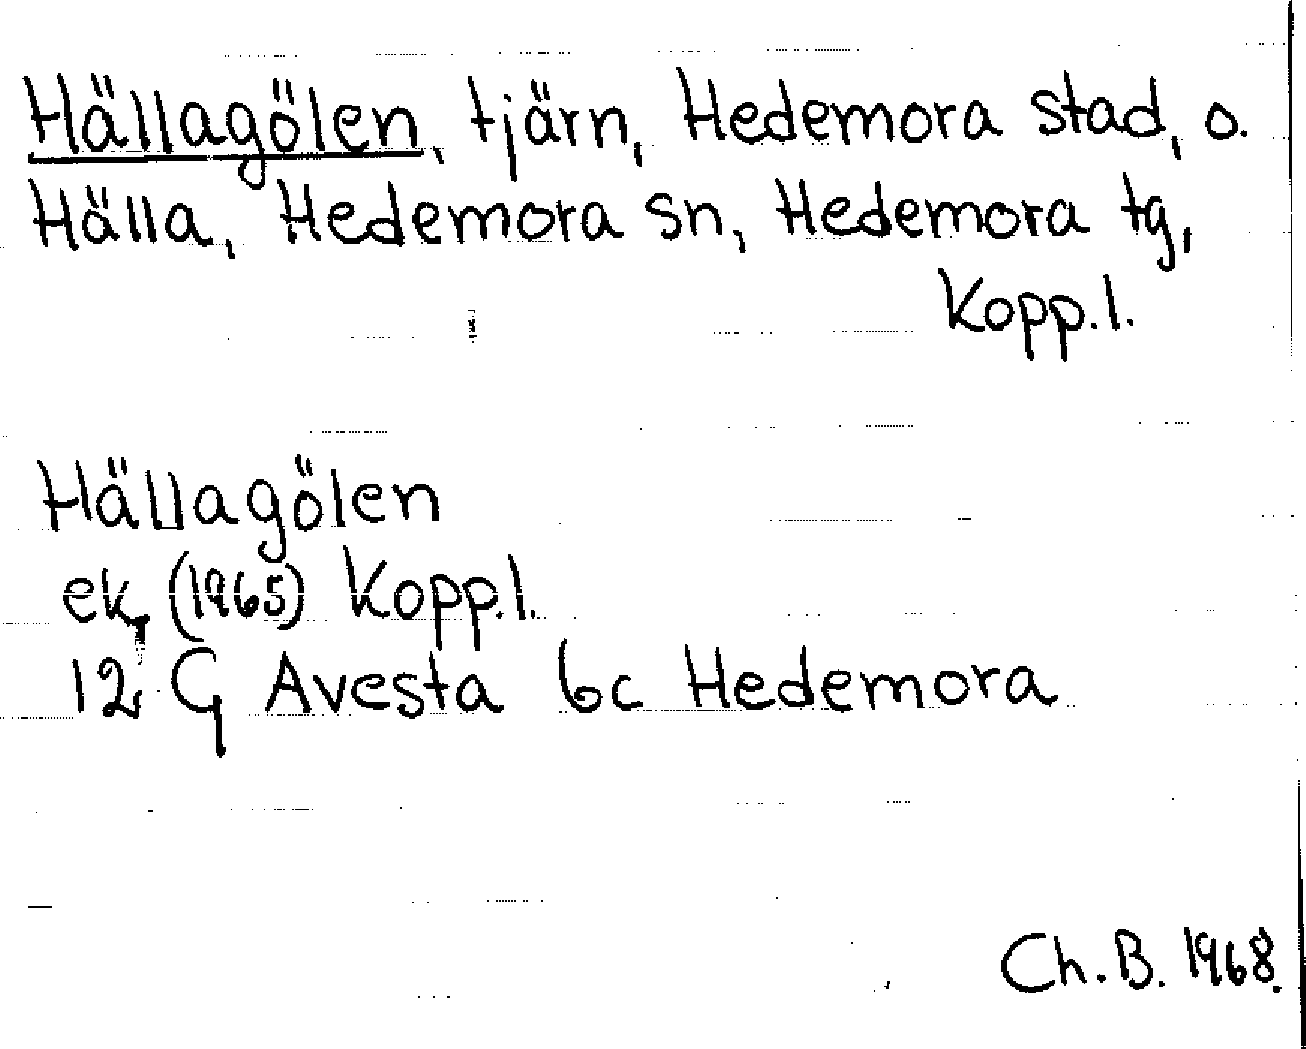 Hällagölen, tjärn, Hedemora stad, o.
Hälla, Hedemora sn, Hedemora tg,
Kopp.l.
Hällagölen
ek, (1965) Kopp.l.
12 G Avesta 6c Hedemora
Ch.B. 1968.